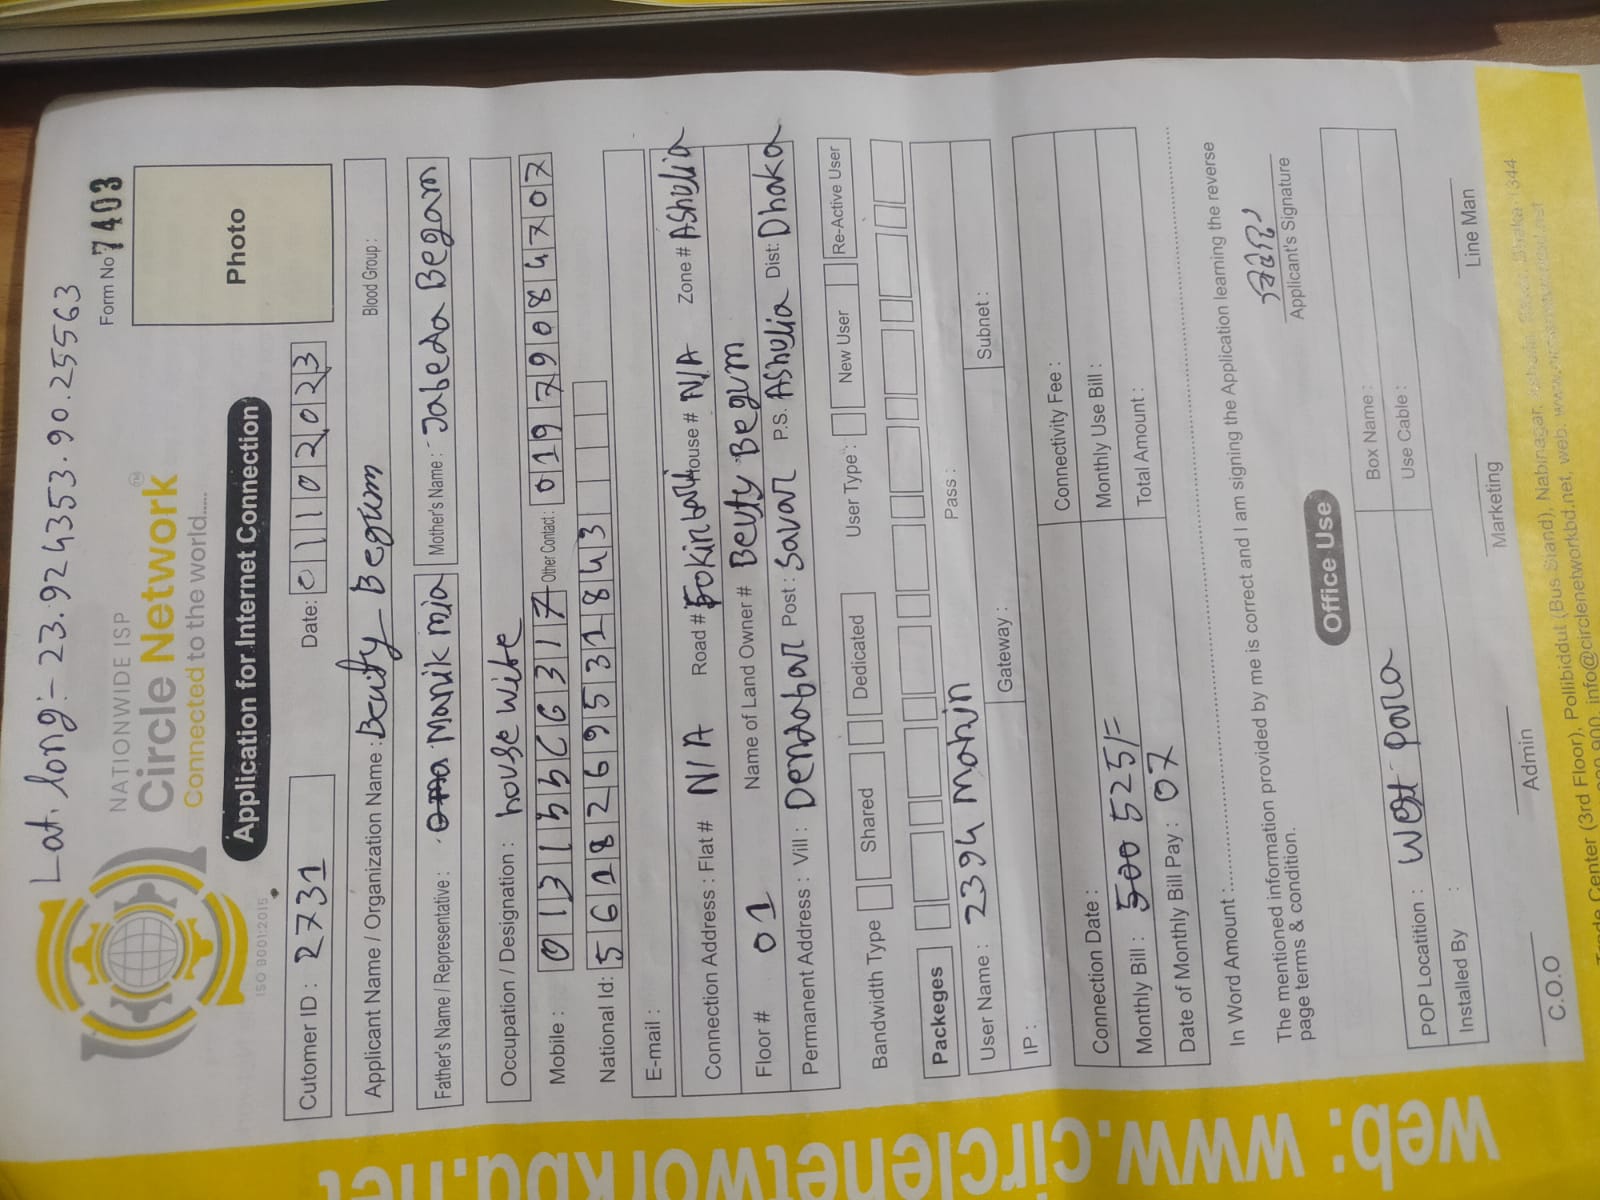 Lat. long:- 23.924353.90.25563
NATIONWIDE ISP
Circle Network TM
Connected to the world......
ISO 9001:2015
Form No 7403
Application for Internet Connection
Photo
Cutomer ID : 2731
Date: 01102023
Applicant Name / Organization Name : Beuty Begum
Blood Group :
Father's Name / Representative : Manik mia
Mother's Name : Jabeda Begam
Occupation / Designation : house wife
Mobile :
Other Contact : 01979084707
National Id: 5618269531843
E-mail :
Connection Address : Flat # N/A Road # House # N/A Zone # AShulia
Floor # 01 Name of Land Owner # Beuty Begum
Permanent Address : Vill : Dendabar Post : Savar P.S. AShulia Dist: Dhaka
Bandwidth Type Shared Dedicated User Type : New User Re-Active User
Packeges
User Name : 2394 Mahin Pass :
IP : Gateway : Subnet :
Connection Date : Connectivity Fee :
Monthly Bill : 500 525/= Monthly Use Bill :
Date of Monthly Bill Pay : 07 Total Amount :
In Word Amount :
The mentioned information provided by me is correct and I am signing the Application learning the reverse
page terms & condition.
Applicant's Signature
Office Use
POP Locatition : West para Box Name :
Installed By : Use Cable :
C.O.O Admin Marketing Line Man
Trade Center (3rd Floor), Pollibiddut (Bus Stand), Nabinagar,
info@circlenetworkbd.net, web:
web: www.circlenetworkbd.net